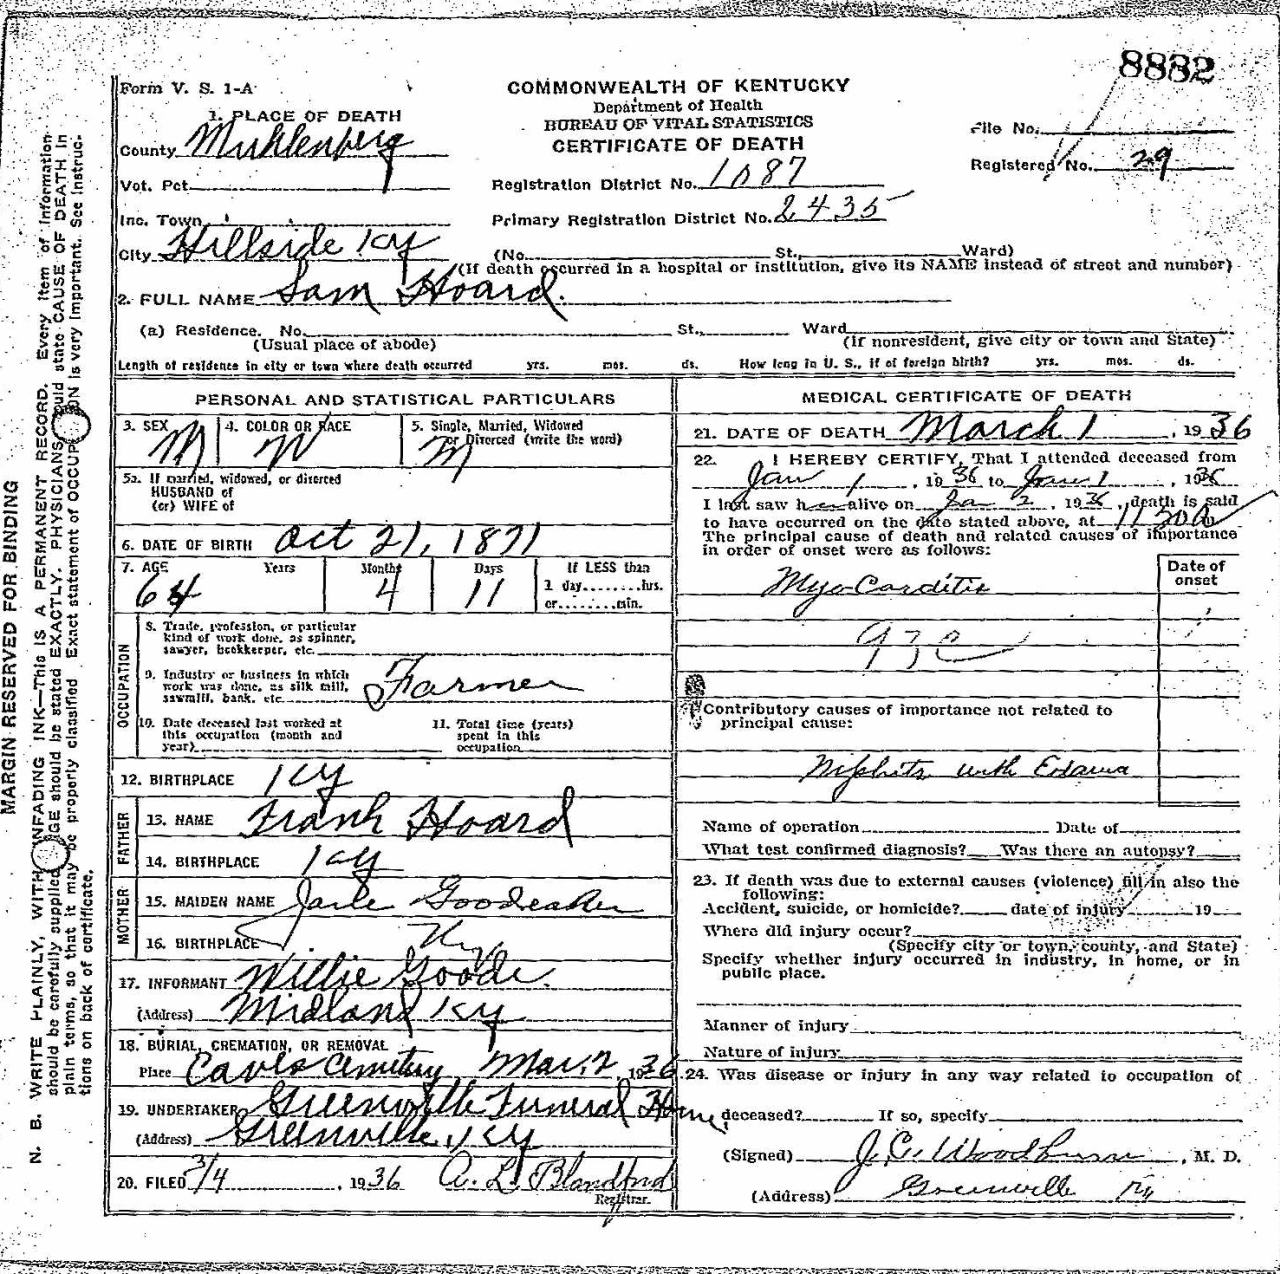 8882
Form V. S. 1-A
COMMONWEALTH OF KENTUCKY
Department of Health
BUREAU OF VITAL STATISTICS
CERTIFICATE OF DEATH
File No.
Registered No. 29
1. PLACE OF DEATH
County Muhlenberg
Vot. Pct.
Registration District No. 1087
Inc. Town
Primary Registration District No. 2435
City Hillside Ky
(No. St., Ward)
(If death occurred in a hospital or institution, give its NAME instead of street and number)
2. FULL NAME Sam Hoard.
(a) Residence. No. St., Ward
(Usual place of abode) (If nonresident, give city or town and State)
Length of residence in city or town where death occurred yrs. mos. ds. How long in U. S., if of foreign birth? yrs. mos. ds.
PERSONAL AND STATISTICAL PARTICULARS
3. SEX M
4. COLOR OR RACE W
5. Single, Married, Widowed
or Divorced (write the word)
M
5a. If married, widowed, or divorced
HUSBAND of
(or) WIFE of
6. DATE OF BIRTH Oct 21, 1871
7. AGE Years Months Days If LESS than
64 4 11 1 day........hrs.
or........min.
OCCUPATION
8. Trade, profession, or particular
kind of work done, as spinner,
sawyer, bookkeeper, etc.
9. Industry or business in which
work was done, as silk mill,
sawmill, bank, etc. Farmer
10. Date deceased last worked at
this occupation (month and
year)
11. Total time (years)
spent in this
occupation
12. BIRTHPLACE Ky
FATHER
13. NAME Frank Hoard
14. BIRTHPLACE Ky
MOTHER
15. MAIDEN NAME
16. BIRTHPLACE Ky
17. INFORMANT Willie Goode.
(Address) Midland Ky
18. BURIAL, CREMATION, OR REMOVAL
Place Eaves Cemetery Mar. 2 1936
19. UNDERTAKER Greenville Funeral Home,
(Address) Greenville, Ky
20. FILED 3/4, 1936 A. L. Blandford
Registrar.
MEDICAL CERTIFICATE OF DEATH
21. DATE OF DEATH March 1, 1936
22. I HEREBY CERTIFY, That I attended deceased from
Jan 1, 1936 to Jan 1, 1936
I last saw h alive on Jan 2, 1936, death is said
to have occurred on the date stated above, at 11 30 a
The principal cause of death and related causes of importance
in order of onset were as follows:
Date of
onset
Myo-Carditis
93c
Contributory causes of importance not related to
principal cause:
Niphits with Edama
Name of operation Date of
What test confirmed diagnosis? Was there an autopsy?
23. If death was due to external causes (violence) fill in also the
following:
Accident, suicide, or homicide? date of injury 19
Where did injury occur?
(Specify city or town, county, and State)
Specify whether injury occurred in industry, in home, or in
public place.
Manner of injury
Nature of injury
24. Was disease or injury in any way related to occupation of
deceased? If so, specify
(Signed) J. C. Woodburn, M. D.
(Address) Greenville Ky
MARGIN RESERVED FOR BINDING
N. B. WRITE PLAINLY, WITH UNFADING INK—This IS A PERMANENT RECORD. Every item of information
should be carefully supplied. AGE should be stated EXACTLY. PHYSICIANS should state CAUSE OF DEATH in
plain terms, so that it may be properly classified. Exact statement of OCCUPATION is very important. See instruc-
tions on back of certificate.